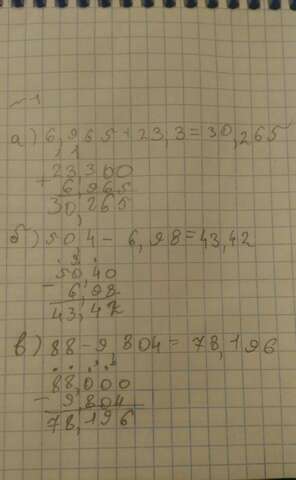 ~1
а) 6,965+23,3=30,265
1 1
23,300
+ 6,965
30,265
б) 50,4 - 6,98=43,42
50,40
- 6,98
43,42
в) 88-9,804=78,196
88,000
- 9,804
78,196